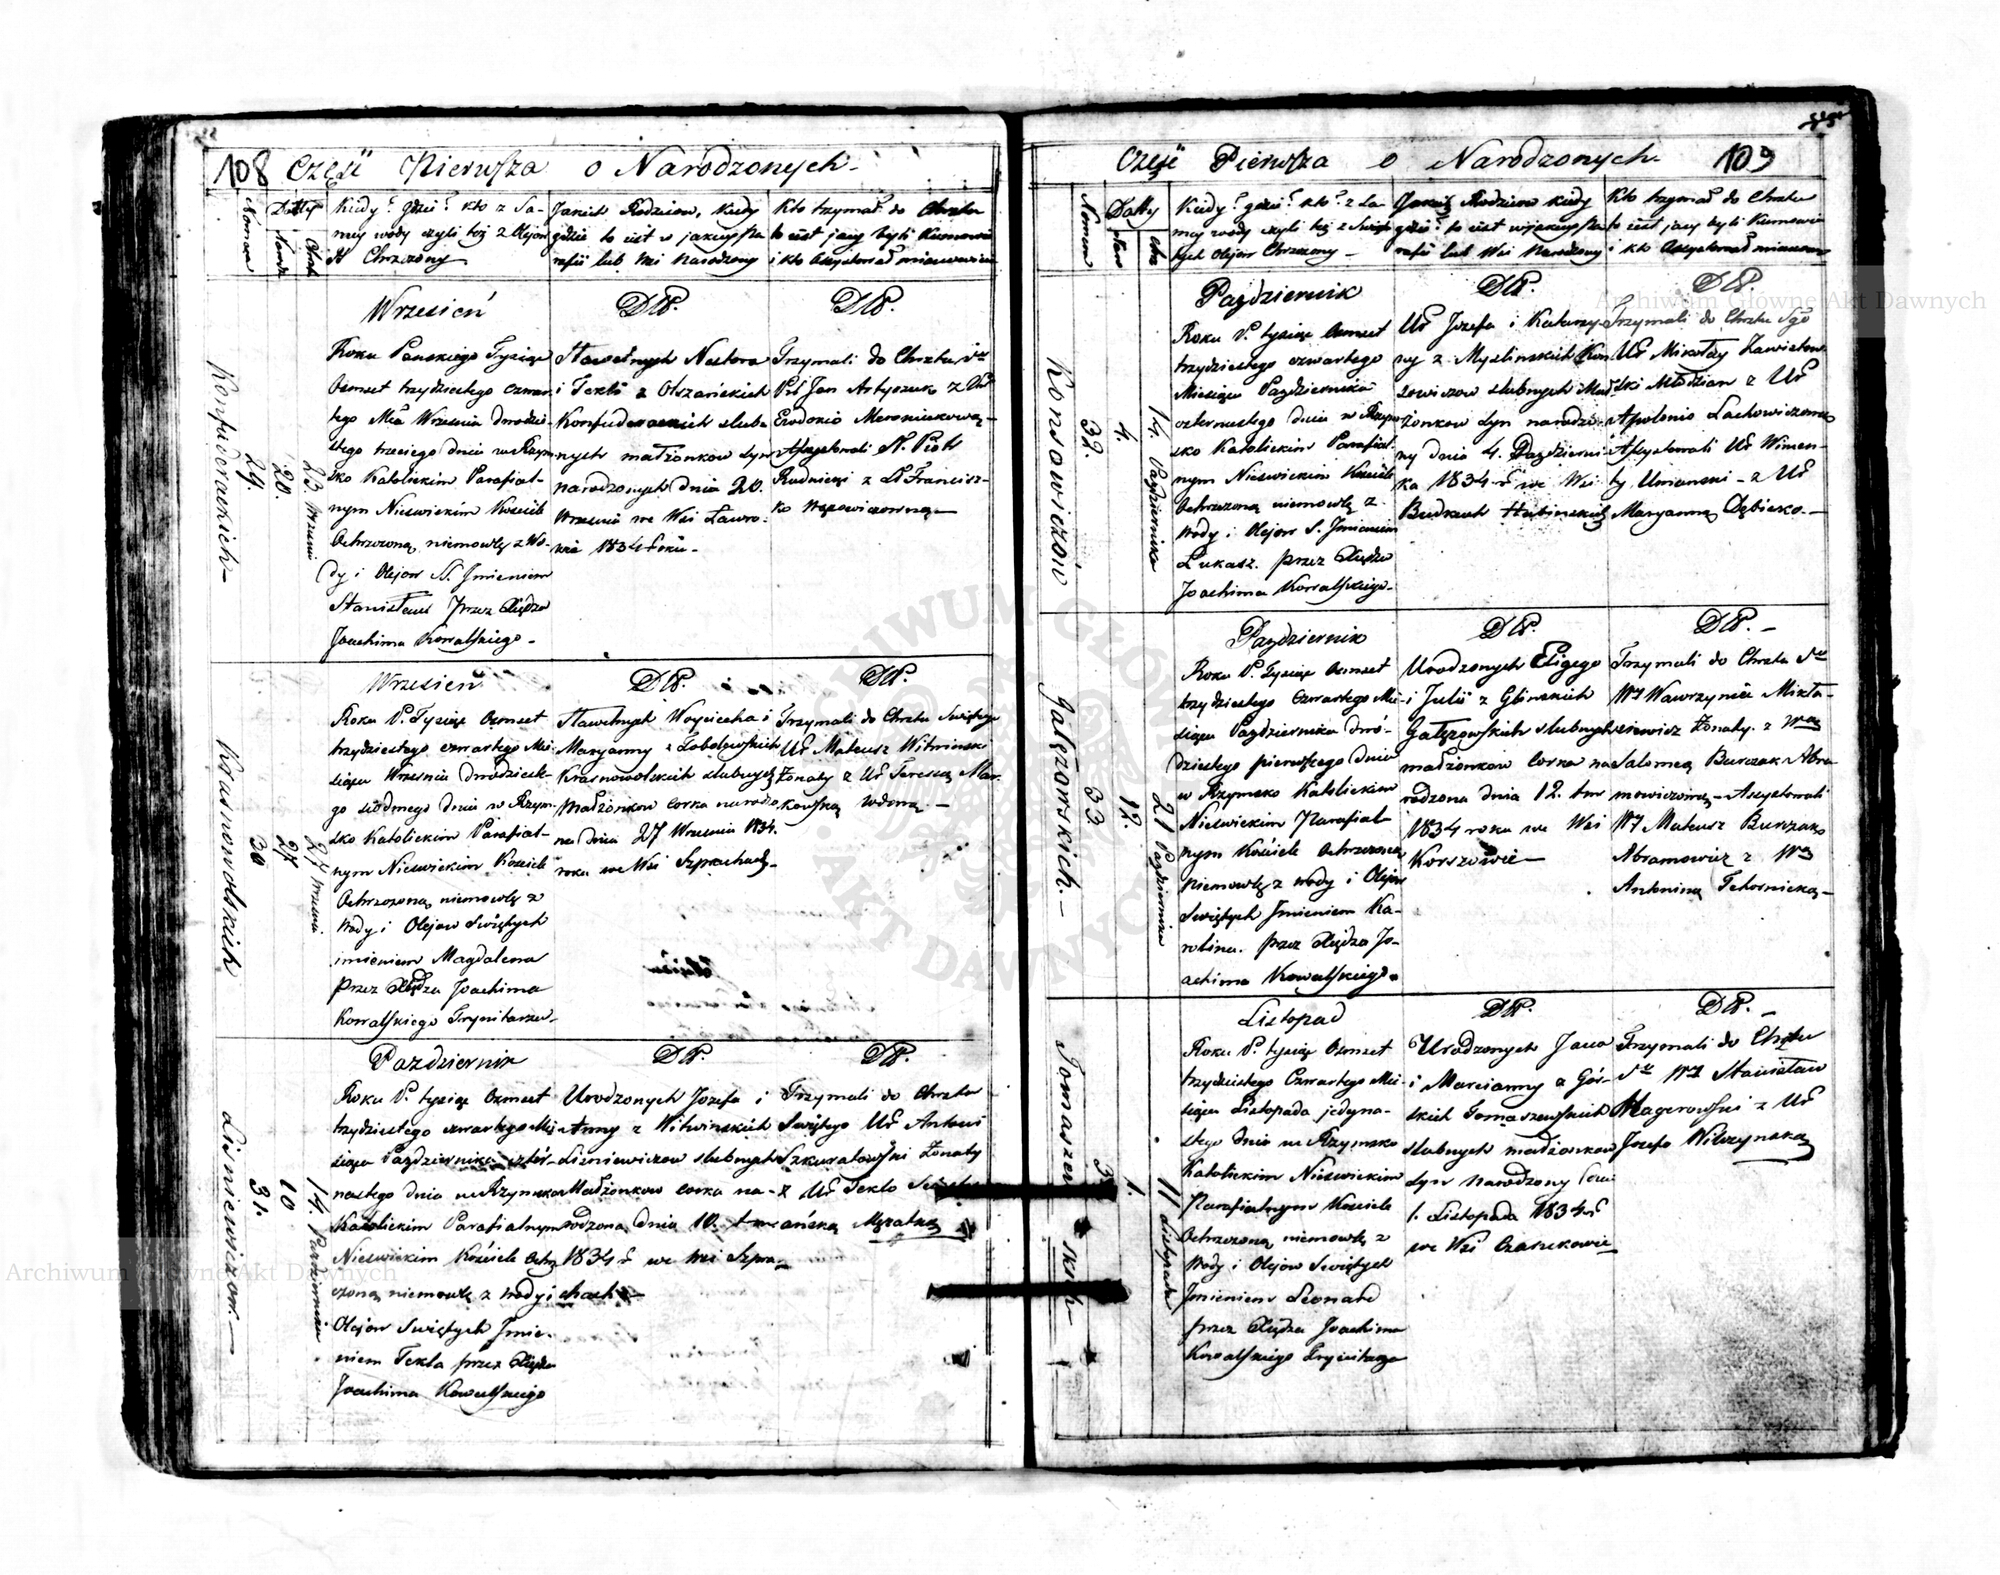 108 Część Pierwsza o Narodzonych
Numera
Datty
Kiedy? gdzie? kto z Sa-
mey wody czyli też z Olejow
SS Chrzczony
Jakich Rodzicow, kiedy
gdzie to iest w jakiey Pa
rafii lub Wsi Narodzony
Kto trzymał do Chrztu
to iest jacy byli Kumowie
i kto Assystował mianowicie
Konfederackich
29.
20.
23. Wrzesnia
Wrzesień
Roku Pańskiego Tysiąc
Osmset trzydziestego czwar
tego Mca Wrzesnia dwodzie-
stego trzeciego dnia w Rzym
sko Katolickim Parafial-
nym Nieswickim Kosciele
Ochrzczoną niemowlę z Wo-
dy i Olejow S. Jmieniem
Stanisław przez Xiędza
Joachima Kowalskiego
Sławetnych Nestora
i Tekli z Olszańskich
Konfederackich slub
nych małżonkow Syn
narodzonych dnia 20.
Wrzesnia we Wsi Ławro-
wie 1834 roku
Trzymali do Chrztu
Jan Artyszuk z
Ewdokio Meroniukową
Assystowali Piotr
Rudnicki z Francisz-
Krasnowolskich
30
27
27 Wrzesnia
Wrzesien
Roku P. Tysiąc Osmset
trzydziestego czwartego Mie
siąca Wrzesnia dwodzieste-
go siodmego dnia w Rzym
sko Katolickim Parafial-
nym Nieswickim Kosciele
Ochrzczoną niemowlę z
Wody i Olejow Swiętych
imieniem Magdalena
przez Xiędza Joachima
Kowalskiego Trynitarza
Sławetnych Woyciecha i
Maryanny z
Krasnowolskich slubnych
Małżonkow corka narodzo
na dnia 27 Wrzesnia 1834.
roku we Wsi Szprachach
Trzymali do Chrztu Swiętego
Ur Mateusz Witwinski
Żonaty z Ur Teressą Mar-
kowską Wdową
Lisniewiczow
31.
10
14. Pazdziernika
Pazdziernik
Roku P. tysiąc Osmset
trzydziestego czwartego Mie
siąca Pazdziernika czter-
nastego dnia w Rzymsko
Katolickim Parafialnym
Nieswickim Kościele Ochrz
czoną niemowlę z Wody i
Olejow Swiętych Jmie-
niem Tekla przez Xiędza
Joachima Kowalskiego
Urodzonych Jozefa i
Anny z Witwinskich
Lisniewiczow slubnych
Małżonkow corka na-
rodzona dnia 10.
1834 r we wsi Szpra-
chach
Trzymali do Chrztu
Swiętego Ur Antoni
Szkuratowski Żonaty
z Ur Teklo
Mężatką
Część Pierwsza o Narodzonych 109
Numera
Datty
Kiedy? gdzie? kto? z Sa
mey wody czyli też z Swię
tych Olejow Chrzczony
Jakich Rodzicow kiedy
gdzie? to iest w jakiey Pa
rafii lub Wsi Narodzony
Kto trzymał do Chrztu
to iest jacy byli Kumowie
i kto Assystował mianow
Konsowiczów
32.
4.
14. Pazdziernika
Pazdziernik
Roku P. tysiąc Osmset
trzydziestego czwartego
Miesiąca Pazdziernika
czternastego dnia w Rzym
sko Katolickim Parafial-
nym Nieswickim Kosciele
Ochrzczoną niemowlę z
Wody i Olejow S. Jmieniem
Łukasz. przez Xiędza
Joachima Kowalskiego
Ur Jozefa i Katarzy
ny z Myslinskich Kon
sowiczow slubnych Mał
żonkow Syn narodzo
ny dnia 4. Pazdzierni-
ka 1834 r we Wsi
Budkach Hubinskich
Trzymali do Chrztu Sgo
Ur Mikołay Zawistow
ski Młodzian z Ur
Apolonio Lachowiczowną
Assystowali Ur Wincen-
ty Umanski - z Ur
Maryanną
Gałęzowskich
33
12.
21 Pazdziernika
Pazdziernik
Roku P. Tysiąc Osmset
trzydziestego Czwartego Mie
siąca Pazdziernika dwo-
dziestego pierwszego dnia
w Rzymsko Katolickim
Nieswickim Parafial-
nym Kościele Ochrzczoną
niemowlę z wody i Olejow
Swiętych Jmieniem Ka-
rolina. przez Xiędza Jo-
achima Kowalskiego
Urodzonych Eligego
i Julii z Glinskich
Gałęzowskich slubnych
małżonkow Corka na
rodzona dnia 12.
1834 roku we Wsi
Korszowie
Trzymali do Chrztu
Wawrzyniec Mikła-
szewicz Żonaty. z
Salomeą Burczak Abra
mowiczową - Assystowali
Mateusz Burczak
Abramowicz z
Antoniną
1.
11 Listopada
Listopad
Roku P. tysiąc Osmset
trzydziestego Czwartego Mie
siąca Listopada jedyna-
stego dnia w Rzymsko
Katolickim Nieswickim
Parafialnym Kosciele
Ochrzczoną niemowlę z
Wody i Olejow Swiętych
Jmieniem Leonard
przez Xiędza Joachima
Kowalskiego Trynitarza
Urodzonych Jana
i Marcianny z Gór-
skich Tomaszewskich
slubnych małżonkow
Syn Narodzony
1. Listopada 1834 r
we Wsi Czarukowie
Trzymali do Chrztu
Stanisław
z Ur
Jozefo Wilczynską
Archiwum Główne Akt Dawnych
Archiwum Główne Akt Dawnych
ARCHIWUM GŁÓWNE
AKT DAWNYCH